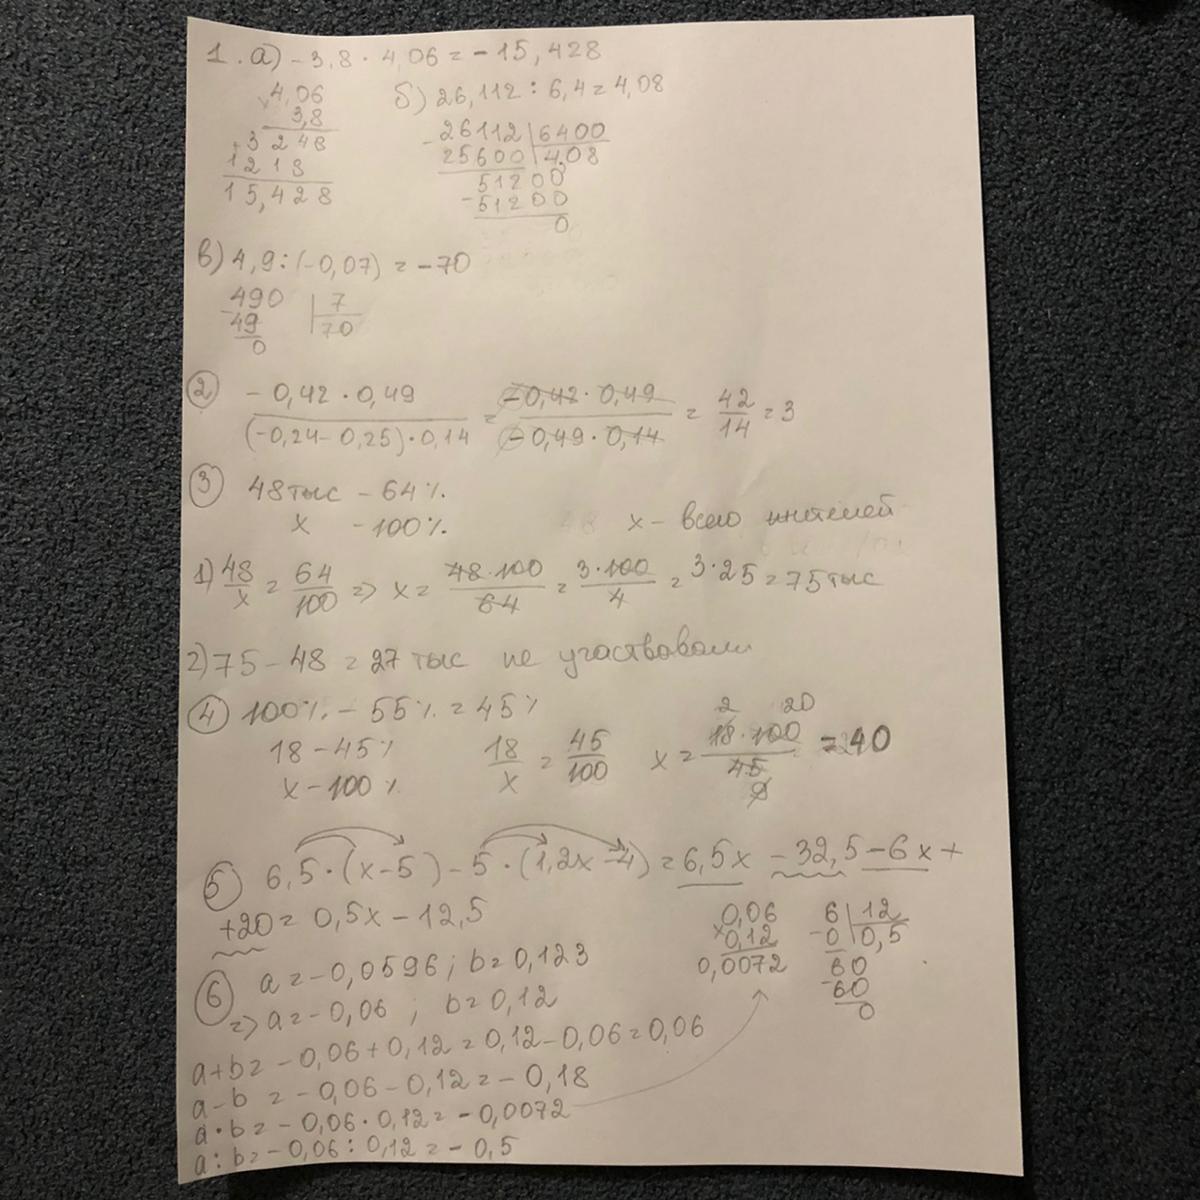 1. а) -3,8 · 4,06 = -15,428
× 4,06
3,8
+ 3 2 4 8
1 2 1 8
1 5, 4 2 8
б) 26,112 : 6,4 = 4,08
- 26112 | 6400
25600 | 4,08
51200
- 51200
0
в) 4,9 : (-0,07) = -70
- 490 | 7
49 | 70
0
② -0,42 · 0,49 / (-0,24 - 0,25) · 0,14 = -0,42 · 0,49 / -0,49 · 0,14 = 42/14 = 3
③ 48 тыс - 64%
x - 100% x - всего жителей
1) 48/x = 64/100 => x = 48·100/64 = 3·100/4 = 3·25 = 75 тыс
2) 75 - 48 = 27 тыс не участвовали
④ 100% - 55% = 45%
18 - 45%
x - 100%
18/x = 45/100
2 20
x = 18·100/45 = 40
9
⑤ 6,5 · (x-5) - 5 · (1,2x-4) = 6,5x - 32,5 - 6x +
+20 = 0,5x - 12,5
⑥ a = -0,0596; b = 0,123
=> a = -0,06 ; b = 0,12
a+b = -0,06 + 0,12 = 0,12 - 0,06 = 0,06
a-b = -0,06 - 0,12 = -0,18
a·b = -0,06 · 0,12 = -0,0072
a:b = -0,06 : 0,12 = -0,5
0,06
× 0,12
0,0072
6 | 12
- 0 | 0,5
60
- 60
0